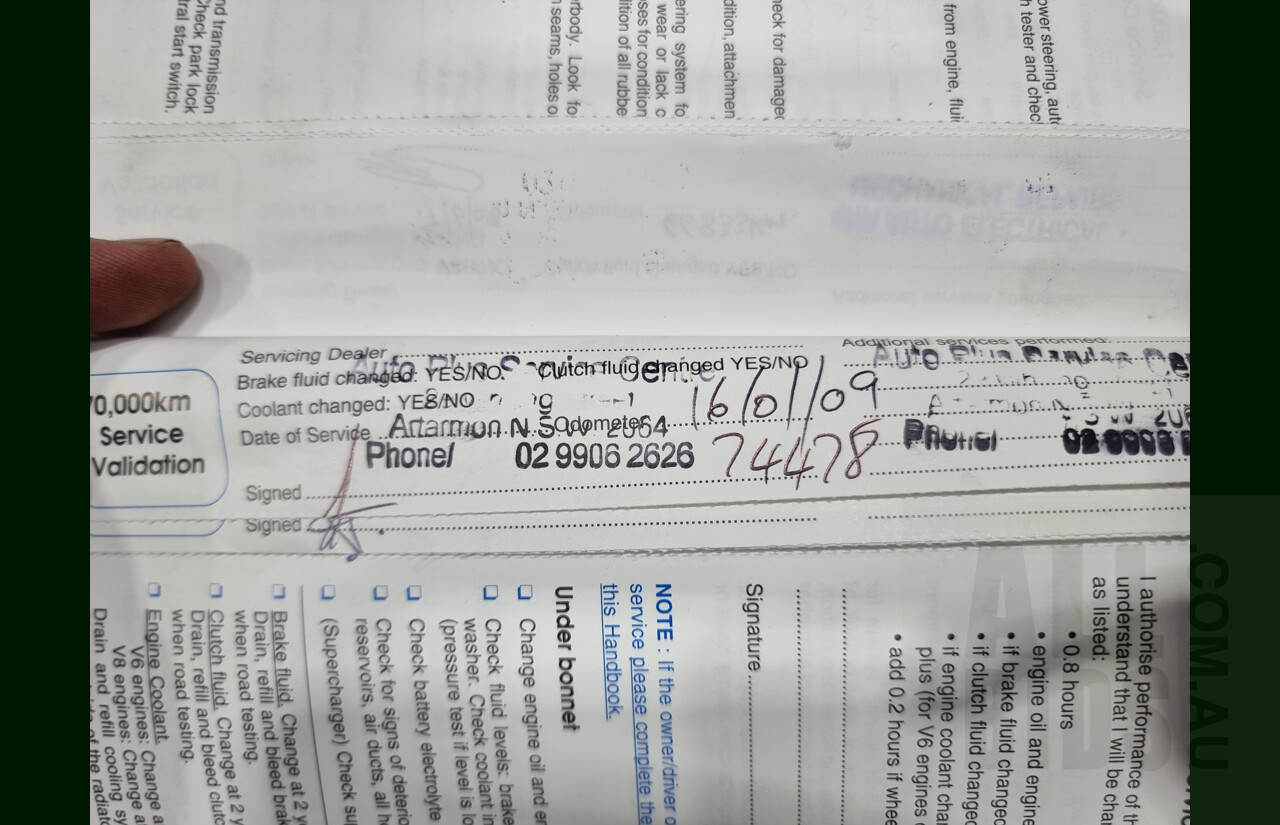 nd transmission
Check park lock
tral start switch.
rbody. Look fo
n seams, holes o
ering system fo
wear or lack o
ses for condition
lition of all rubbe
dition, attachmen
eck for damaged
from engine, flui
ower steering, aut
h tester and chec
Servicing Dealer
Brake fluid changed: YES/NO. Clutch fluid changed YES/NO
Coolant changed: YES/NO
Date of Service Odometer
Artarmon N.S.W 2064
Phone 02 9906 2626
16/01/09
74478
Signed
Signed
0,000km
Service
Validation
Additional services performed:
I authorise performance of th
understand that I will be char
as listed:
• 0.8 hours
• engine oil and engine
• if brake fluid changed
• if clutch fluid changed
• if engine coolant char
plus (for V6 engines o
• add 0.2 hours if whee
Signature
NOTE : If the owner/driver o
service please complete the
this Handbook.
Under bonnet
Change engine oil and en
Check fluid levels: brake
washer. Check coolant in
(pressure test if level is lo
Check battery electrolyte
Check for signs of deterio
reservoirs, air ducts, all h
(Supercharger) Check su
Brake fluid. Change at 2 y
Drain, refill and bleed brak
when road testing.
Clutch fluid. Change at 2 y
Drain, refill and bleed clutc
when road testing.
Engine Coolant.
V6 engines: Change a
V8 engines: Change a
Drain and refill cooling sy
of the radiato
.COM.AU